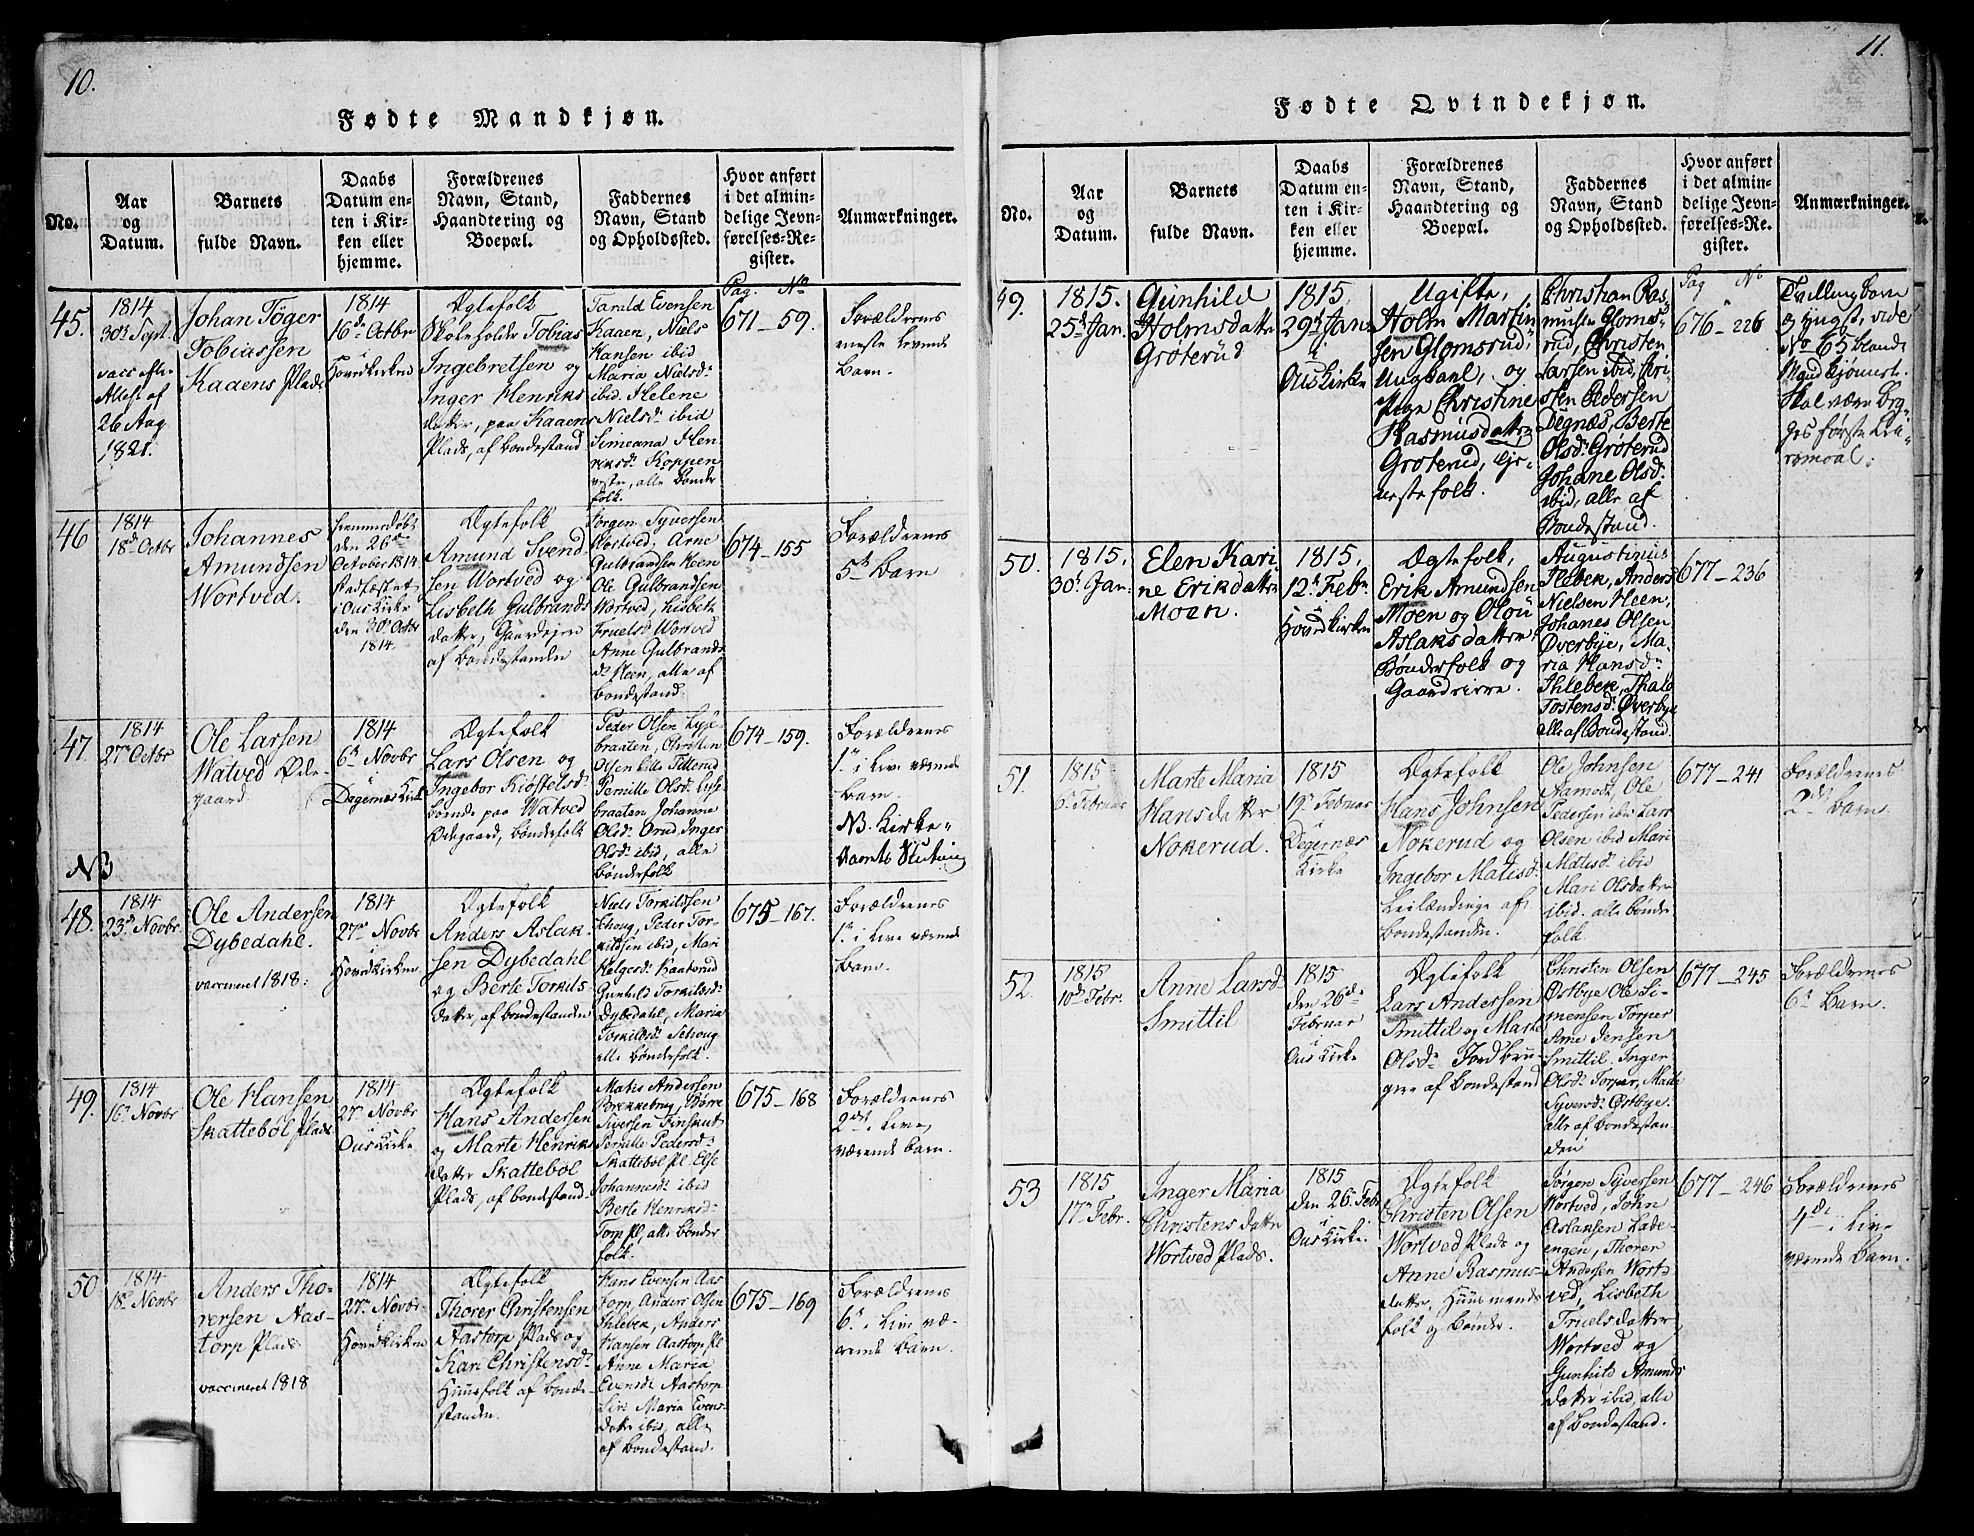 10.
Fødte Mandkjøn.
No.
Aar
og
Datum.
Barnets
fulde Navn.
Daabs
Datum en-
ten i Kir-
ken eller
hjemme.
Forældrenes
Navn, Stand,
Haandtering og
Boepæl.
Faddernes
Navn, Stand
og Opholdssted.
Hvor anført
i det almin-
delige Jevn-
førelses-Re-
gister.
Anmærkninger.
Pag. No
45.
1814
30te Sept.
vacc. efter
Attest af
26 Aug
1821.
Johan Töger
Tobiassen
Kaaens Plads
1814
16de Octbr
i
Hovedkirken
Ægtefolk
Skoleholder Tobias
Ingebretsen og
Inger Henriks
datter, paa Kaaens
Plads, af bondestand
Tarald Evensen
Kaaen, Niels
Hansen ibid
Maria Nielsd:
ibid. Helene
Nielsd: ibid
Simeana Hen
riksd: Koppen
, alle bønder
folk.
671-59.
Forældrenes
neste levende
Barn.
46
1814
18de Octbr
Johannes
Amundsen
Wortved.
hjemmedøbt
den 26de
October 1814.
stadfæstet
i Øus Kirke
den 30te Octbr
1814.
Ægtefolk
Amund Svend
sen Wortved og
Lisbeth Gulbrands
datter, Gaardejere
af bondestanden
Jørgen Syversen
Wortved. Arne
Gulbrandsen Heen
Ole Gulbrandsen
Wortved, Lisbeth
Truelsd: Wortved
Anne Gulbrands
d: Heen, alle af
bondestand.
674-155
Forældrenes
5te Barn
47.
1814
27de Octbr
Ole Larsen
Watved Øde-
gaard.
1814
6te Novbr
i
Degernæs Kirke
Ægtefolk
Lars Olsen og
Ingebor Kiöstelsd:
boende paa Watved
Ødegaard, bønderfolk
Peder Olsen Lyse
braaten, Christen
Olsen Lille Titterud
Pernille Olsd: Lys
braaten Johanne
Olsd: Orud, Inger
Olsd: ibid, alle
bønderfolk
674-159.
Forældrenes
1te i Live værende
Barn.
NB. Kirke-
Aarets Slutning
NB
48.
1814
23de Novbr
Ole Andersen
Dybedahl.
vaccineret 1818.
1814
27de Novbr
i
Hovedkirken
Ægtefolk
Anders Aslak
sen Dybedahl
og Berte Torkils
datter, af bondestanden
Niels Torkildsen
Schoug, Peder Tor-
kildsen ibid, Mari
Helgesd:
Gunhild Torkildsd:
Dybedahl, Maria
Torkildsd: Schoug
alle bønderfolk.
675-167.
Forældrenes
1te i Live værende
Barn.
49.
1814
16de Novbr
Ole Hansen
Skattebøl Plads
1814
27de Novbr
i
Øus Kirke
Ægtefolk
Hans Andersen
og Marte Henriks
datter Skattebøl
Plads, af bondestand.
Matis Andersen
Brekkebrug, Börre
Siversen Finskut
Pernille Pedersd:
Skattebøl Pl. Else
Johannesd: ibid
Berte Henriksd:
Torp Pl, alle bønder
folk.
675-168
Forældrenes
2det i Live
værende barn.
50
1814
18de Novbr
Anders Tho-
rersen Aas-
torp Plads
vaccineret 1818
1814
27de Novbr
i
Hovedkirken
Ægtefolk
Thorer Christensen
Aastorp Plads og
Kari Christensd:
Huusfolk af bonde-
standen.
Hans Evensen Aas
torp, Anders Olsen
Ihlebek, Anders
Hansen Aastorp Pl
Anne Maria
Evensd: Aastorp
Siri Maria Evens-
datter ibid, alle
af bondestand.
675-169
Forældrenes
6te i Live væ-
rende barn.
11.
Fødte Qvindekjøn.
No.
Aar
og
Datum.
Barnets
fulde Navn.
Daabs
Datum en-
ten i Kir-
ken eller
hjemme.
Forældrenes
Navn, Stand,
Haandtering og
Boepæl.
Faddernes
Navn, Stand
og Opholdssted.
Hvor anført
i det almin-
delige Jevn-
førelses-Re-
gister.
Anmærkninger.
Pag No
49.
1815.
25de Jan.
Gunhild
Holmsdatter
Groterud
1815.
29de Jan.
i
Øus Kirke
Ugifte,
Holm Martin
sen Glomsrud,
Ungkarl, og
Pige Christine
Rasmusdatter
Groterud, tje-
nestefolk.
Christian Ras-
musen Gloms-
rud, Christen
Larsen ibid, Kri-
sten Pedersen
Degnæs, Berte
Olsd: Gröterud
Johane Olsd:
ibid, alle af
Bondestand.
676-226
Tvillingbarn
og yngst, vide
No 65 blandt
Mandkjønnet.
Skal være beg-
ges første Lei-
ermaal.
50.
1815.
30te Jan.
Elen Kari
ne Erikdatter
Moen.
1815.
12te Febr.
i
Hovedkirken
Ægtefolk,
Erik Amundsen
Moen og Olou
Aslaksdatter
Bønderfolk og
Gaardeiere.
Augustinus
Ilebek, Anders
Nielsen Heen,
Johanes Olsen
Øverbye, Ma-
ria Hansd:
Ihlebek, Thale
Tostensd: Øverbye
alle af Bondestand.
677-236
51.
1815
6te Februar
Marte Maria
Hansdatter
Nokerud.
1815
19de Februar
i
Degernæs
Kirke
Ægtefolk
Hans Johnsen
Nokerud og
Ingebor Matisd:
Leilændinge af
bondestanden.
Ole Johnsen
Aamodt, Ole
Pedersen ibid Lars
Olsen ibid Mari
Matisd: ibid
Mari Olsdatter
ibid. alle bønder
folk
677-241
Forældrenes
2det Barn.
52.
1815
10de Febr.
Anne Larsd:
Smittil
1815
den 26de
Februar
i
Øus Kirke
Ægtefolk
Lars Andersen
Smittil og Marte
Olsd: Jordbru
gere af bondestand
Christen Olsen
Østbye Ole Si-
mensen Torper
Arne Jensen
Smittil, Inger
Olsd: Torper, Mari
Syversd: Østbye.
alle af bondestan
den
677-245
Forældrenes
6te Barn.
53
1815
17de Febr.
Inger Maria
Christensdatter
Wortved Plads.
1815
den 26de Febr
i
Øus Kirke.
Ægtefolk
Christen Olsen
Wortved Plads og
Anne Rasmus-
datter, Huusmands
folk og bønder.
Jørgen Syversen
Wortved, John
Aslaksen Lade-
engen, Thorer
Andersen Wort-
ved, Lisbeth
Truelsdatter
Wortved og
Gunhild Amunds
datter ibid, alle
af bondestand.
677-246
Forældrenes
4de i Live
værende Barn.